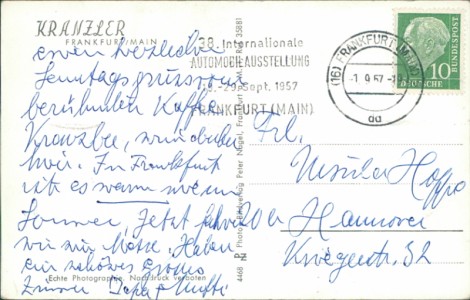 KRANZLER
FRANKFURT/MAIN
38. Internationale
AUTOMOBIL-AUSSTELLUNG
-29. Sept. 1957
FRANKFURT (MAIN)
(16) FRANKFURT (MAIN)
-1.9.57
aa
10
DEUTSCHE
BUNDESPOST
einen herzlichen
Sonntagsgruss vom
berühmten Kaffee
Kranzler, senden
wir. In Frankfurt
ist es warm wie im
Sommer, jetzt fahren
wir zur Messe. Haben
ein schönes großes
Zimmer Papa + Mutti
Frl.
Ursula Hoppe
20 a Hannover
Kriegerstr. 32
Photo- und Verlag Peter Nagel, Frankfurt a. M., Ruf 35881
4468
Echte Photographie Nachdruck verboten